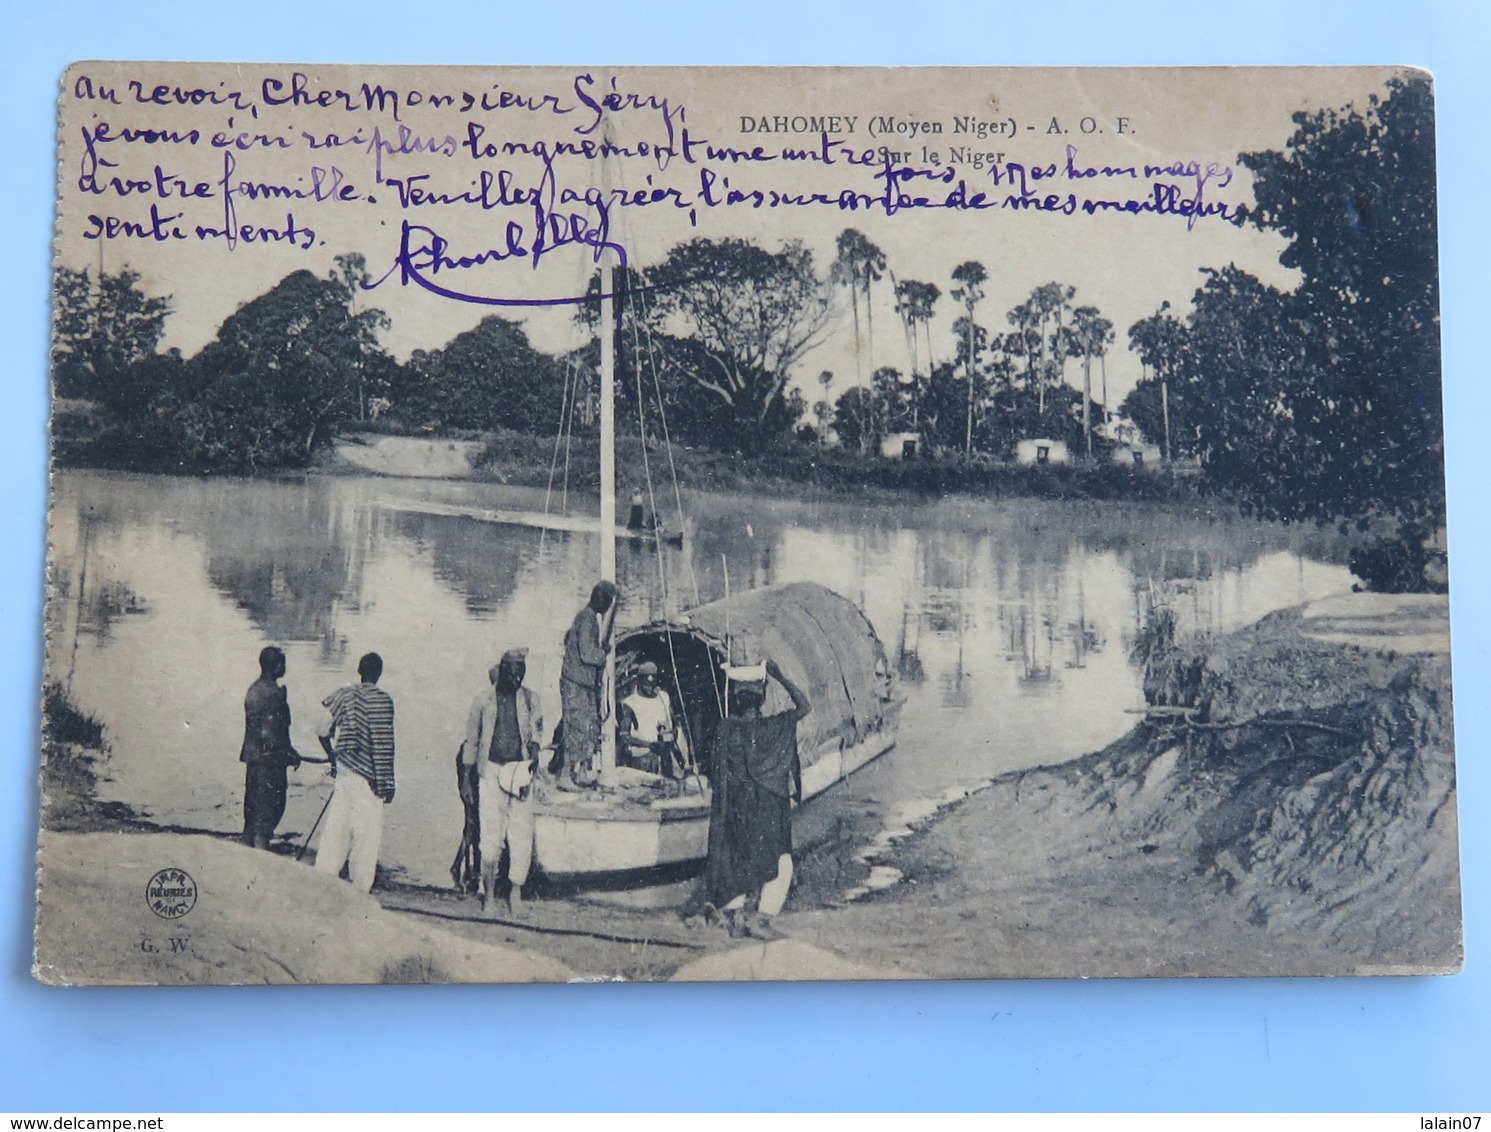 au revoir, Cher Monsieur Séry,
je vous écrirai plus longuement une autre fois, Mes hommages
à votre famille. Veuillez agréer, l'assurance de mes meilleurs
sentiments.
DAHOMEY (Moyen Niger) - A. O. F.
Sur le Niger
IMPR.
REUNIES
NANCY
G. W.
delcampe.net
lalain07